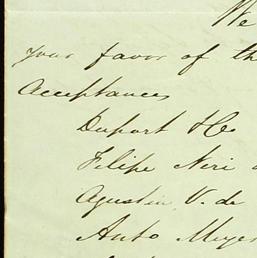 We
your favor of th
Acceptances
Duport & Co
Filipe Neri
Agustin V. de
Anto Meyer